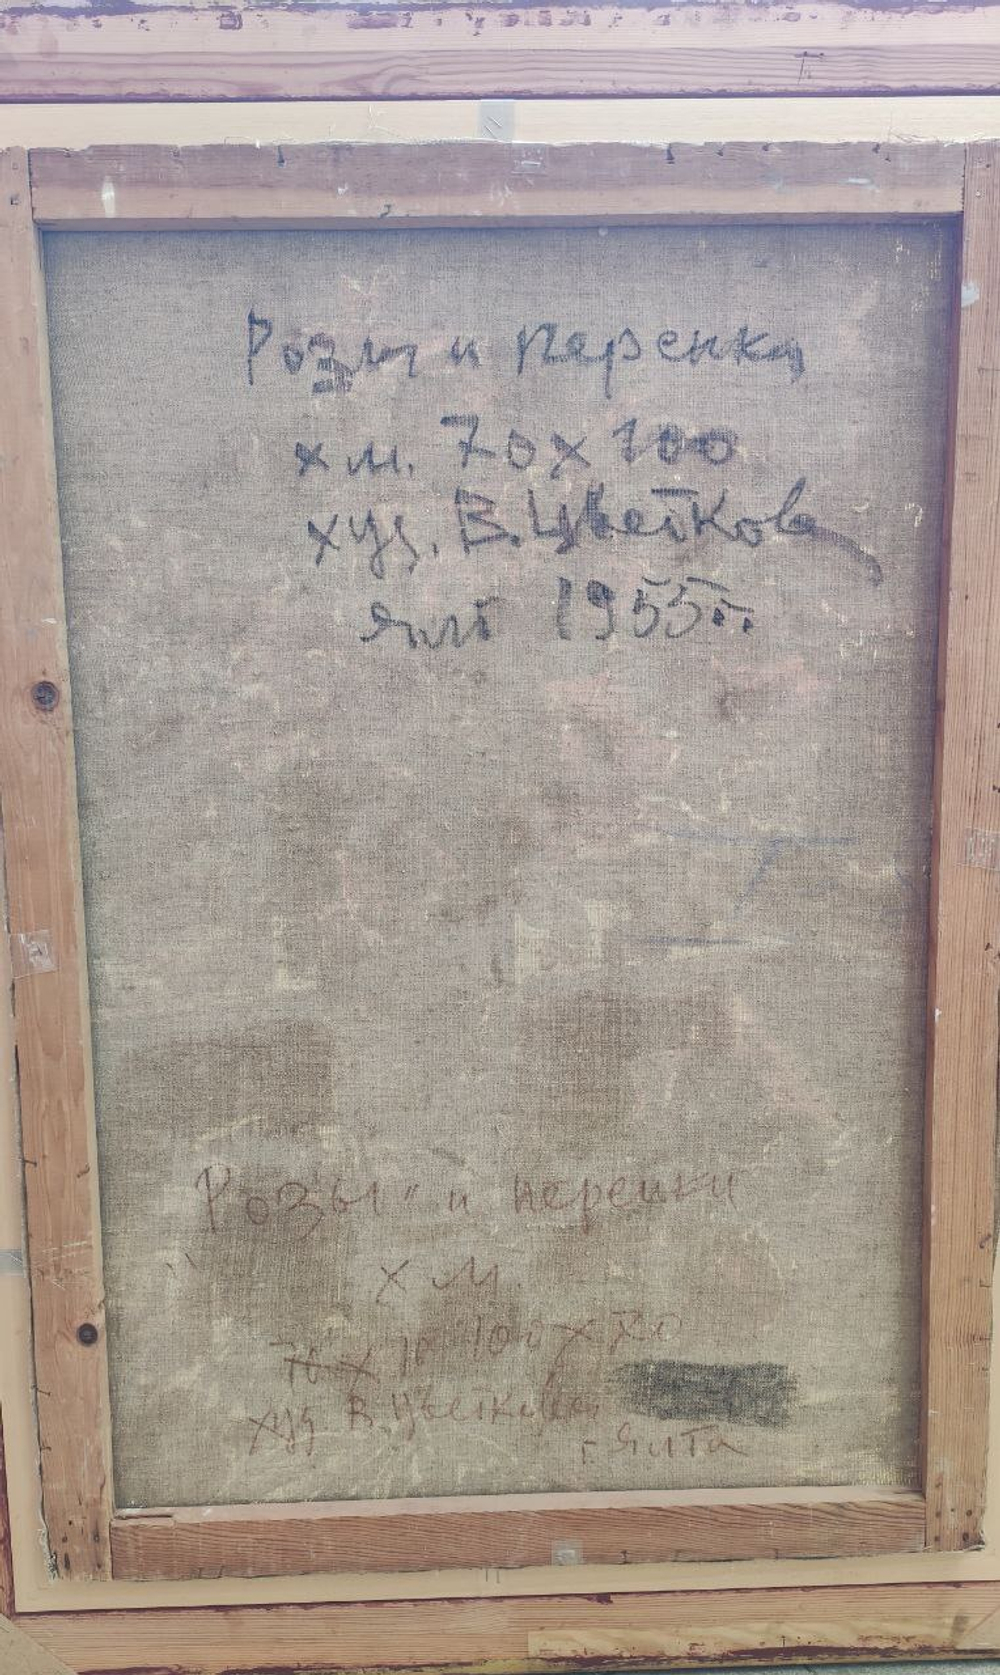 Розы и перенка
х м. 70 х 100
худ. В. Цветкова
Ялт 1955 г.
"Розы" и перенки
х м.
100 х 70
худ. В. Цветкова
г. Ялта